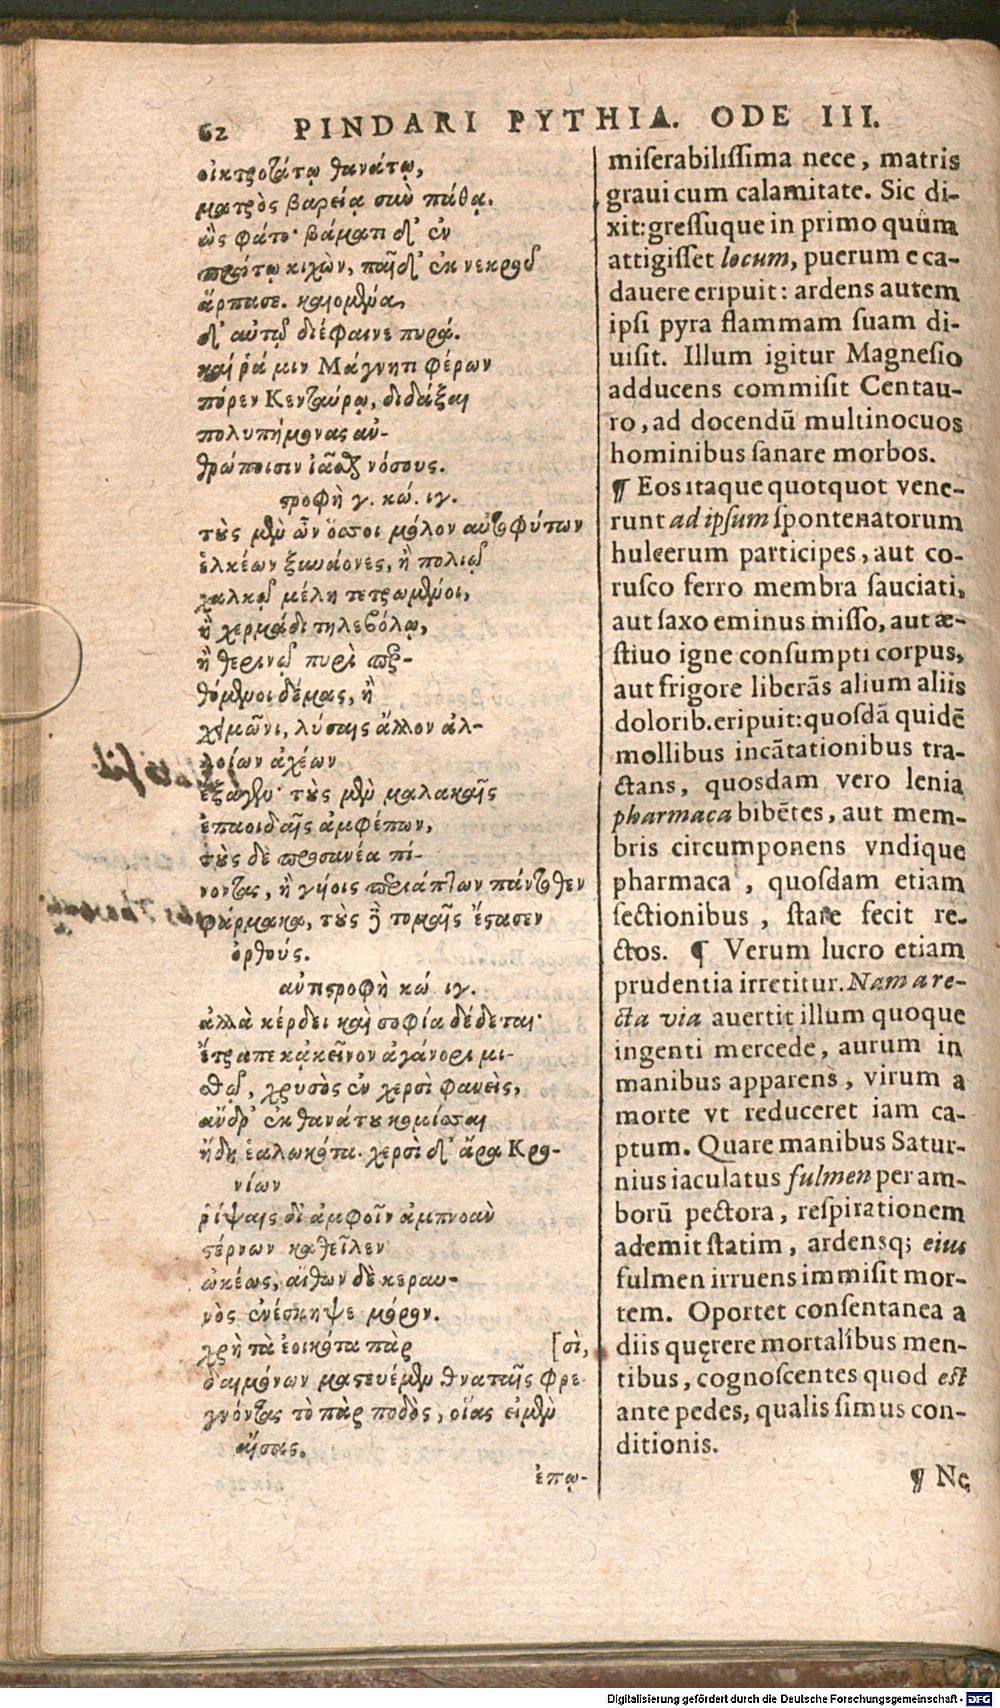 62 PINDARI PYTHIA. ODE III.
οἰκτροτάτῳ θανάτῳ,
ματρὸς βαρείᾳ σιωὺ πάθᾳ.
ὣς φάτο· βάματι δ' ἐν
πρώτῳ κιχὼν, παῖδ' ἐκ νεκροῦ
ἅρπασε. καιομένα
δ' αὐτῷ διέφαινε πυρά.
καί ῥά μιν Μάγνητι φέρων
πόρεν Κενταύρῳ, διδάξαι
πολυπήμονας ἀν-
θρώποισιν ἰᾶσθαι νόσους.
στροφὴ γ. κώ. ιγ.
τοὺς μὲν ὦν ὅσσοι μόλον αὐτοφύτων
ἑλκέων ξυνάονες, ἢ πολιῷ
χαλκῷ μέλη τετρωμένοι,
ἢ χερμάδι τηλεβόλῳ,
ἢ θερινῷ πυρὶ περ-
θόμενοι δέμας, ἢ
χειμῶνι, λύσαις ἄλλον ἀλ-
λοίων ἀχέων
ἔξαγεν· τοὺς μὲν μαλακαῖς
ἐπαοιδαῖς ἀμφέπων,
τοὺς δὲ προσανέα πί-
νοντας, ἢ γυίοις περιάπτων πάντοθεν
φάρμακα, τοὺς δὲ τομαῖς ἔστασεν
ὀρθούς.
ἀντιστροφὴ κώ. ιγ.
ἀλλὰ κέρδει καὶ σοφία δέδεται·
ἔτραπε κᾀκεῖνον ἀγάνορι μι-
θῷ, χρυσὸς ἐν χερσὶ φανεὶς,
ἄνδρ' ἐκ θανάτου κομίσσαι
ἤδη ἑαλωκότα. χερσὶ δ' ἄρα Κρο-
νίων
ῥίψαις δι' ἀμφοῖν ἀμπνοὰν
στέρνων καθεῖλεν
ὠκέως, αἴθων δὲ κεραυ-
νὸς ἐνέσκηψε μόρον.
χρὴ τὰ ἐοικότα πὰρ [σὶ,
δαιμόνων μαστευέμεν θναταῖς φρε-
γνόντας τὸ πὰρ ποδὸς, οἵας εἰμὲν
αἴσας.
ἐπῳ-
miserabilissima nece, matris
graui cum calamitate. Sic di-
xit: gressuque in primo quum
attigisset locum, puerum e ca-
dauere eripuit: ardens autem
ipsi pyra flammam suam di-
uisit. Illum igitur Magnesio
adducens commisit Centau-
ro, ad docendũ multinocuos
hominibus sanare morbos.
¶ Eos itaque quotquot vene-
runt ad ipsum sponte natorum
hulcerum participes, aut co-
rusco ferro membra sauciati,
aut saxo eminus misso, aut æ-
stiuo igne consumpti corpus,
aut frigore liberãs alium aliis
dolorib. eripuit: quosdã quidẽ
mollibus incãtationibus tra-
ctans, quosdam vero lenia
pharmaca bibẽtes, aut mem-
bris circumponens vndique
pharmaca, quosdam etiam
sectionibus, stare fecit re-
ctos. ¶ Verum lucro etiam
prudentia irretitur. Nam a re-
cta via auertit illum quoque
ingenti mercede, aurum in
manibus apparens, virum a
morte vt reduceret iam ca-
ptum. Quare manibus Satur-
nius iaculatus fulmen per am-
borũ pectora, respirationem
ademit statim, ardensq; eius
fulmen irruens immisit mor-
tem. Oportet consentanea a
diis quęrere mortalibus men-
tibus, cognoscentes quod est
ante pedes, qualis simus con-
ditionis.
¶ Ne
Digitalisierung gefördert durch die Deutsche Forschungsgemeinschaft - DFG